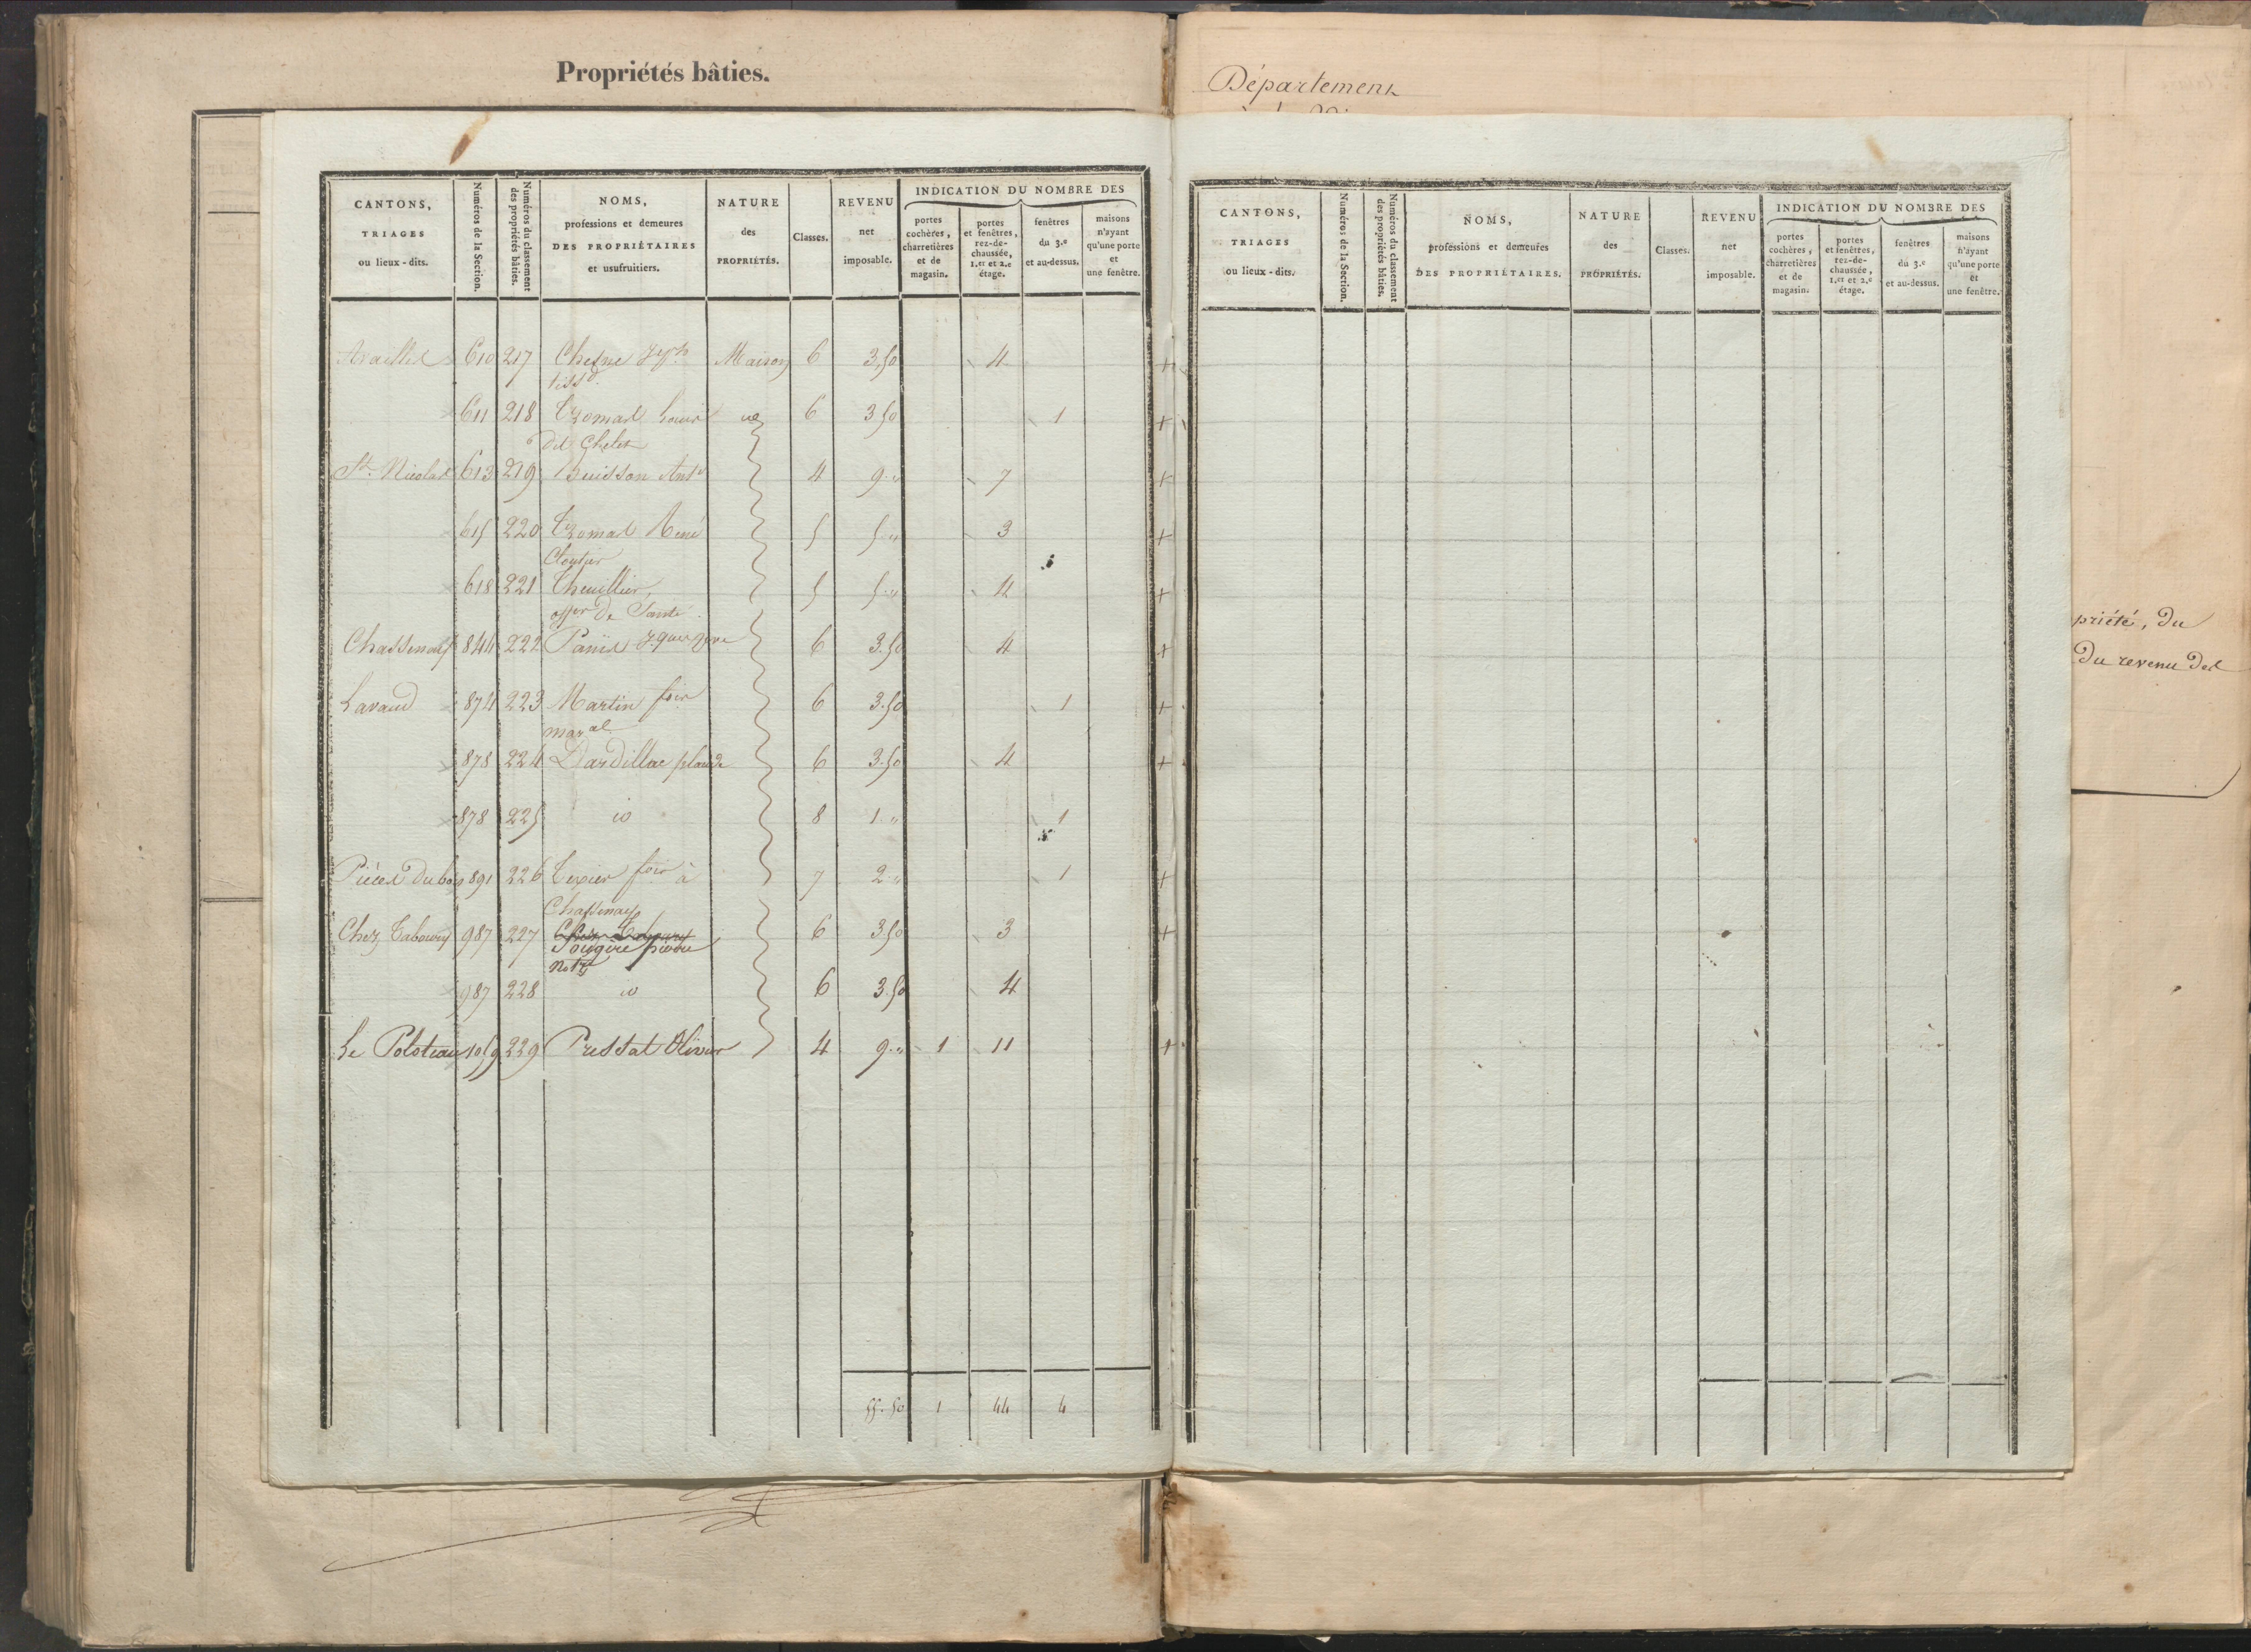 Propriétés bâties.
Département
CANTONS,
TRIAGES
ou lieux-dits.
Numéros de la Section.
Numéros du classement
des propriétés bâties.
NOMS,
professions et demeures
DES PROPRIÉTAIRES
et usufruitiers.
NATURE
des
PROPRIÉTÉS.
Classes.
REVENU
net
imposable.
INDICATION DU NOMBRE DES
portes
cochères,
charretières
et de
magasin.
portes
et fenêtres,
rez-de-
chaussée,
1.er et 2.e
étage.
fenêtres
du 3.e
et au-dessus.
maisons
n'ayant
qu'une porte
et
une fenêtre.
Availles 610 217 Chesne Jph Maison 6 3,50 4 +
tissd
611 218 Tromas Louis id 6 3 50 1 +
dit Chelet
St. Nicolas 613 219 buisson Ant 4 9 " 7 +
615 220 Tromas René 5 5 " 3 +
Cloutier
618 221 Theuillier, 5 5 " 4 +
offer de Santé
Chassenay 844 222 Panis 6 3.50 4 +
Lavaud 874 223 Martin foix 6 3.50 1 +
maral
878 224 Dardillac 6 3.50 4 +
878 225 id 8 1 " 1
Pièces du bois 891 226 Texier foix à 7 2 " 1 +
Chassenay
Chez Taboury 987 227 Chez Taboury 6 3 50 3 +
pierre
Notre
987 228 id 6 3.50 4
Le Poloteau 1059 229 Pressat Olivier 4 9 " 1 11 +
55.50 1 44 4
CANTONS,
TRIAGES
ou lieux-dits.
Numéros de la Section.
Numéros du classement
des propriétés bâties.
NOMS,
professions et demeures
DES PROPRIÉTAIRES.
NATURE
des
PROPRIÉTÉS.
Classes.
REVENU
net
imposable.
INDICATION DU NOMBRE DES
portes
cochères,
charretières
et de
magasin.
portes
et fenêtres,
rez-de-
chaussée,
1.er et 2.e
étage.
fenêtres
du 3.e
et au-dessus.
maisons
n'ayant
qu'une porte
et
une fenêtre.
priété, du
du revenu des